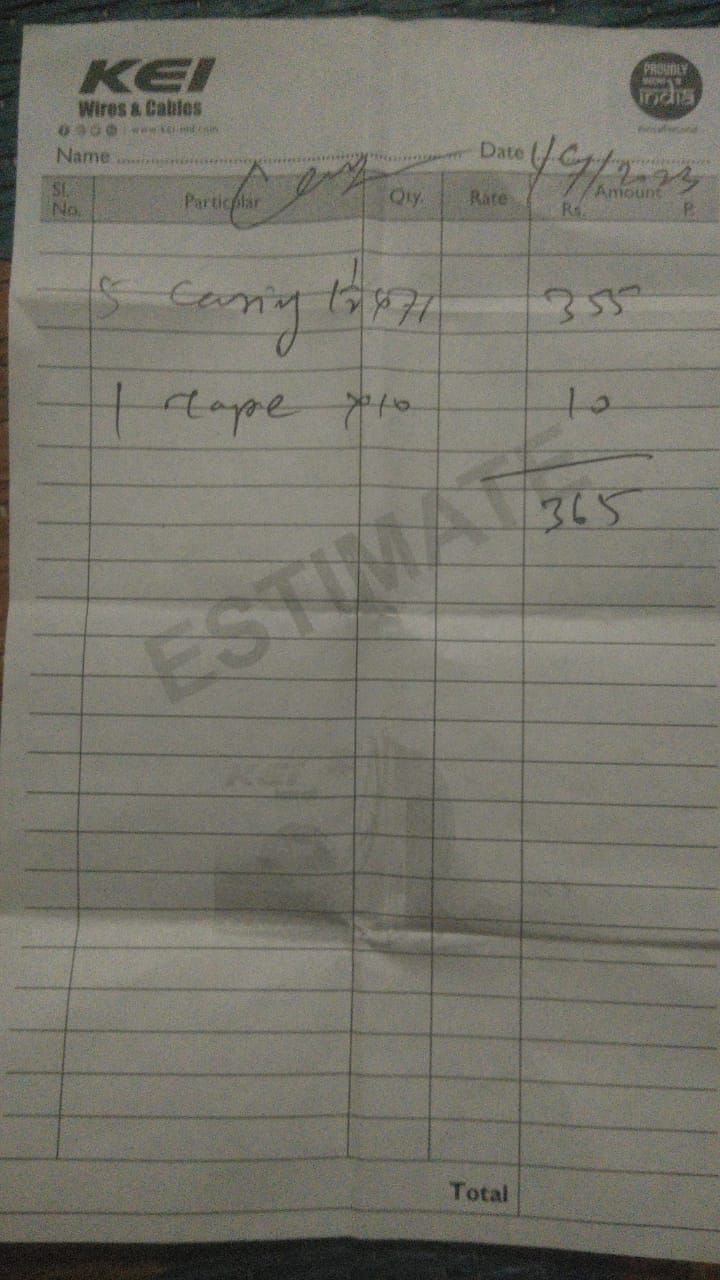 KEI
Wires & Cables
www.kei-ind.com
PROUDLY
india
Name Date 1/9/2023
Sl. No. Particular Qty. Rate Amount Rs. P.
5 Casing 1 1/2 x 71 355
1 tape x 10 10
365
ESTIMATE
KEI
Total